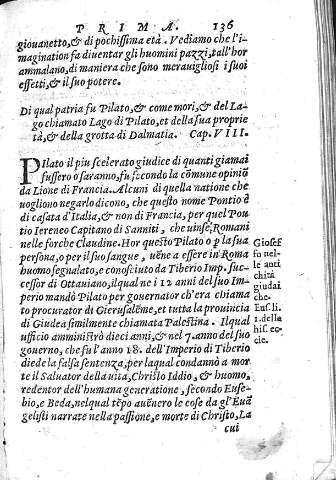 PRIMA. 136
giouanetto, & di pochissima età. Vediamo che l'i-
magination fa diuentar gli huomini pazzi, tall'hor
ammalano, di maniera che sono merauigliosi i suoi
effetti, & il suo potere.
Di qual patria fu Pilato, & come mori, & del La-
go chiamato Lago di Pilato, et della sua proprie
tà, & della grotta di Dalmatia. Cap. VIII.
PIlato il piu scelerato giudice di quanti giamai
fussero o saranno, fu secondo la cõmune opiniõ
da Lione di Francia. Alcuni di quella natione che
uogliono negarlo dicono, che questo nome Pontio è
di casata d'Italia, & non di Francia, per quel Pon
tio Ireneo Capitano di Sanniti, che uinse, Romani
nelle forche Claudine. Hor questo Pilato o p la sua
persona, o per il suo sangue, uẽne a essere in Roma
huomo segnalato, e conosciuto da Tiberio Imp. suc-
cessor di Ottauiano, ilqual ne i 12 anni del suo Im-
perio mandò Pilato per gouernator ch'era chiama
to procurator di Gierusalẽme, et tutta la prouincia
di Giudea similmente chiamata Palestina. Ilqual
ufficio amministrò dieci anni, & nel 7. anno del suo
gouerno, che fu l'anno 18. dell'Imperio di Tiberio
diede la falsa sentenza, per laqual condannò a mor
te il Saluator della uita, Christo Iddio, & huomo,
redentor dell'humana generatione, secondo Euse-
bio, e Beda, nelqual tẽpo auẽnero le cose da gl'Euã
gelisti narrate nella passione, e morte di Christo, La
cui
Giosef
fo nel-
le anti
chità
giudai
che.
Eus. li.
1. della
his. ec-
cle.